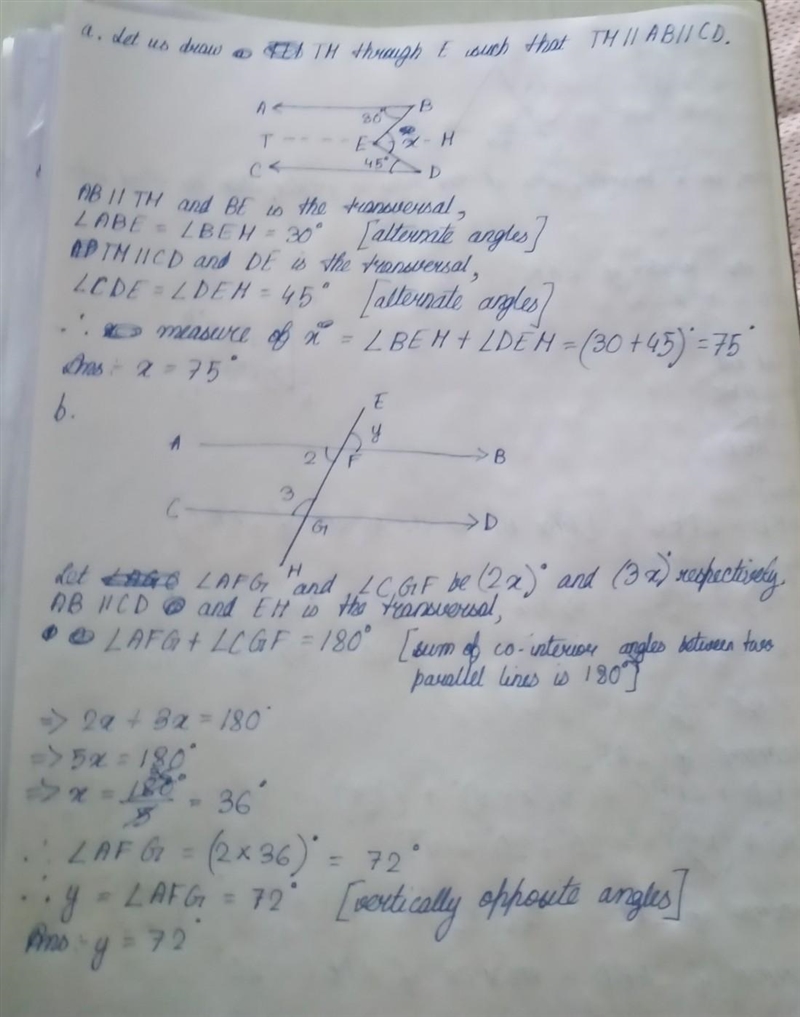 a. Let us draw TM through E such that TM || AB || CD.
A B
30°
T E x M
45°
C D
AB || TM and BE is the transversal,
∠ABE = ∠BEM = 30° [alternate angles]
TM || CD and DE is the transversal,
∠CDE = ∠DEM = 45° [alternate angles]
∴ measure of x° = ∠BEM + ∠DEM = (30 + 45)° = 75°
Ans :- x = 75°
b.
E
y
A 2 F B
3
C G D
H
Let ∠AFG and ∠CGF be (2x)° and (3x)° respectively.
AB || CD and EH is the transversal,
∠AFG + ∠CGF = 180° [sum of co-interior angles between two
parallel lines is 180°]
=> 2x + 3x = 180°
=> 5x = 180°
=> x = 180°/5 = 36°
∴ ∠AFG = (2 × 36)° = 72°
∴ y = ∠AFG = 72° [vertically opposite angles]
Ans :- y = 72°